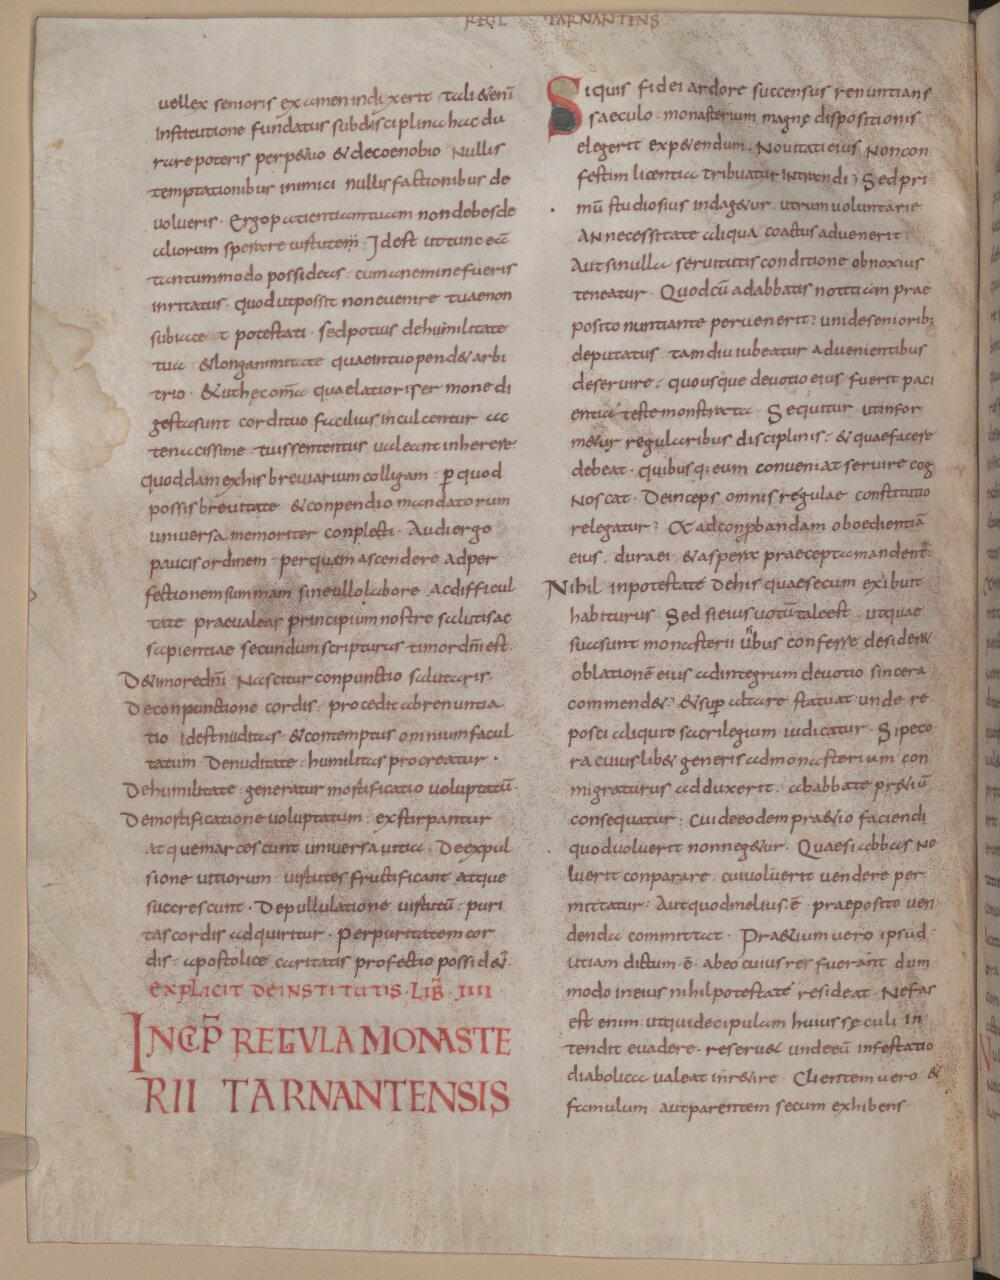 REGL TARNANTENS
uellex senioris examen induxerit · tali & eni
institutione fundatus subdisciplina hac du
rare poteris perp&uo & decoenobio Nullis
temptationibus inimici nullis factionibus de
uolueris · Ergo patientiam tuam non debes de
aliorum sperare uirtute · Idest ut tunc eā
tantummodo possideas · cum a nemine fueris
inritatus · quod ut possit non euenire tuae non
subiacet potestati · sed potius de humilitate
tua · & longanimitate quae in tuo pend& arbi
trio · & ut hęc om̄a quae latiori sermone di
gesta sunt cordi tuo facilius inculcentur ac
tenacissime · tuis sensibus ualeant inherere ·
quoddam ex his breuiarium colligam · ꝑ quod
possis breuitate & conpendio mandatorum
uniuersa memoriter conplecti · Audi ergo
paucis ordinem · per quem ascendere ad per
fectionem summam sine ullo labore ac difficul
tate praeualeas principium nostre salutis ac
sapientiae secundum scripturas timor dn̄i est ·
De timore dn̄i Nascitur conpunctio salutaris ·
De conpunctione cordis · procedit abrenuntia
tio · idest nuditas · & contemptus omnium facul
tatum · De nuditate · humilitas procreatur ·
De humilitate · generatur mortificatio uoluptatū ·
De mortificatione uoluptatum · exstirpantur
atque marcescunt uniuersa uitia · De expul
sione uitiorum · uirtutes fructificant atque
succrescunt · De pullulatione uirtutū · puri
tas cordis adquiritur · Per puritatem cor
dis · apostolice caritatis profectio possid& ·
EXPLICIT DE INSTITUTIS · LIB̄ · IIII
INCP̄ REGULA MONASTE
RII TARNANTENSIS
Siquis fidei ardore succensus renuntians
saeculo · monasterium magnę dispositionis
elegerit exp&endum · Nouitati eius Non con
festim licentia tribuatur intrandi · Sed pri
mū studiosius indag&ur · utrum uoluntarie
AN necessitate aliqua coactus aduenerit ·
Aut si nulla seruitutis conditione obnoxius
teneatur · Quod cū ad abbatis notitiam prae
posito nuntiante peruenerit · uni de seniorib;
deputatus · tamdiu iubeatur aduenientibus
deseruire · quousque deuotio eius fuerit paci
entia teste monstrata · Sequitur ut infor
m&ur regularibus disciplinis · & quae facere
debeat · quibusq; eum conueniat seruire cog
Noscat · Deinceps omnis regulae constitutio
relegatur · Et ad conꝓbandam oboedientiā
eius · dura ei · & aspera praecepta mandent᷑ ·
Nihil in potestate de his quae secum exibuit
habiturus · Sed si eius uotū tale est · ut quae
sua sunt monasterii uiribus conferre desider&
oblationē eius ad integrum deuotio sincera
commend& · & suꝑ altare statuat unde re
posci aliquit sacrilegium iudicatur · Si peco
ra cuiuslib& generis ad monasterium con
migraturus adduxerit · ab abbate pr&iū
consequatur · Cui de eodem pra&io faciendi
quod uoluerit non neg&ur · Quae si abbas No
luerit conparare · cui uoluerit uendere per
mittatur · Aut quod melius · ē · praeposito uen
denda committat · Pra&ium uero ipsud ·
ut iam dictum · ē · ab eo cuius res fuerant dum
modo in eius nihil potestate resideat · Nefas
est enim · ut qui decipulam huius sęculi in
tendit euadere · reseru& unde eū infestatio
diabolica ualeat inr&ire · Clientem uero &
famulum aut parentem secum exhibens ·